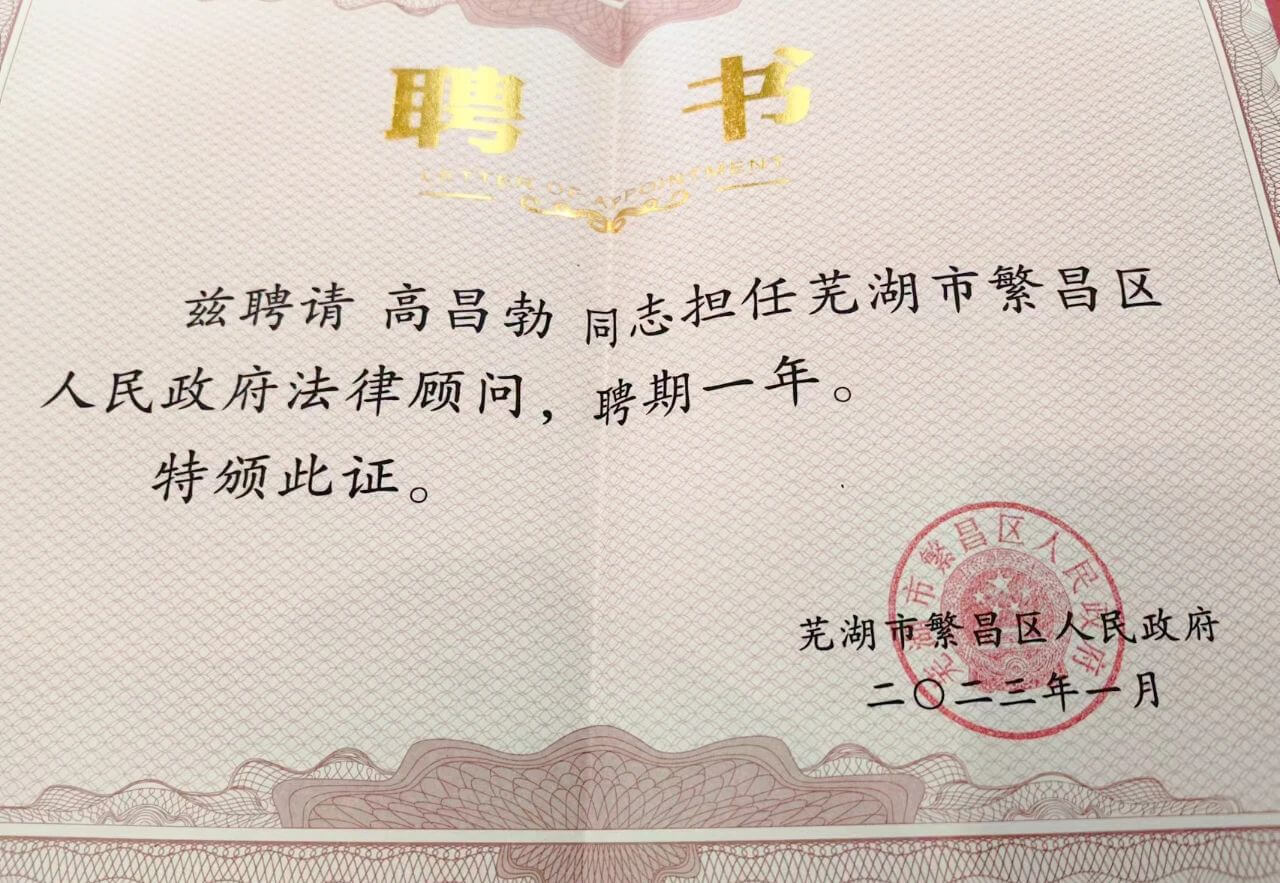 聘书
LETTER OF APPOINTMENT
兹聘请 高昌勃 同志担任芜湖市繁昌区
人民政府法律顾问，聘期一年。
特颁此证。
芜湖市繁昌区人民政府
芜湖市繁昌区人民政府
二〇二三年一月